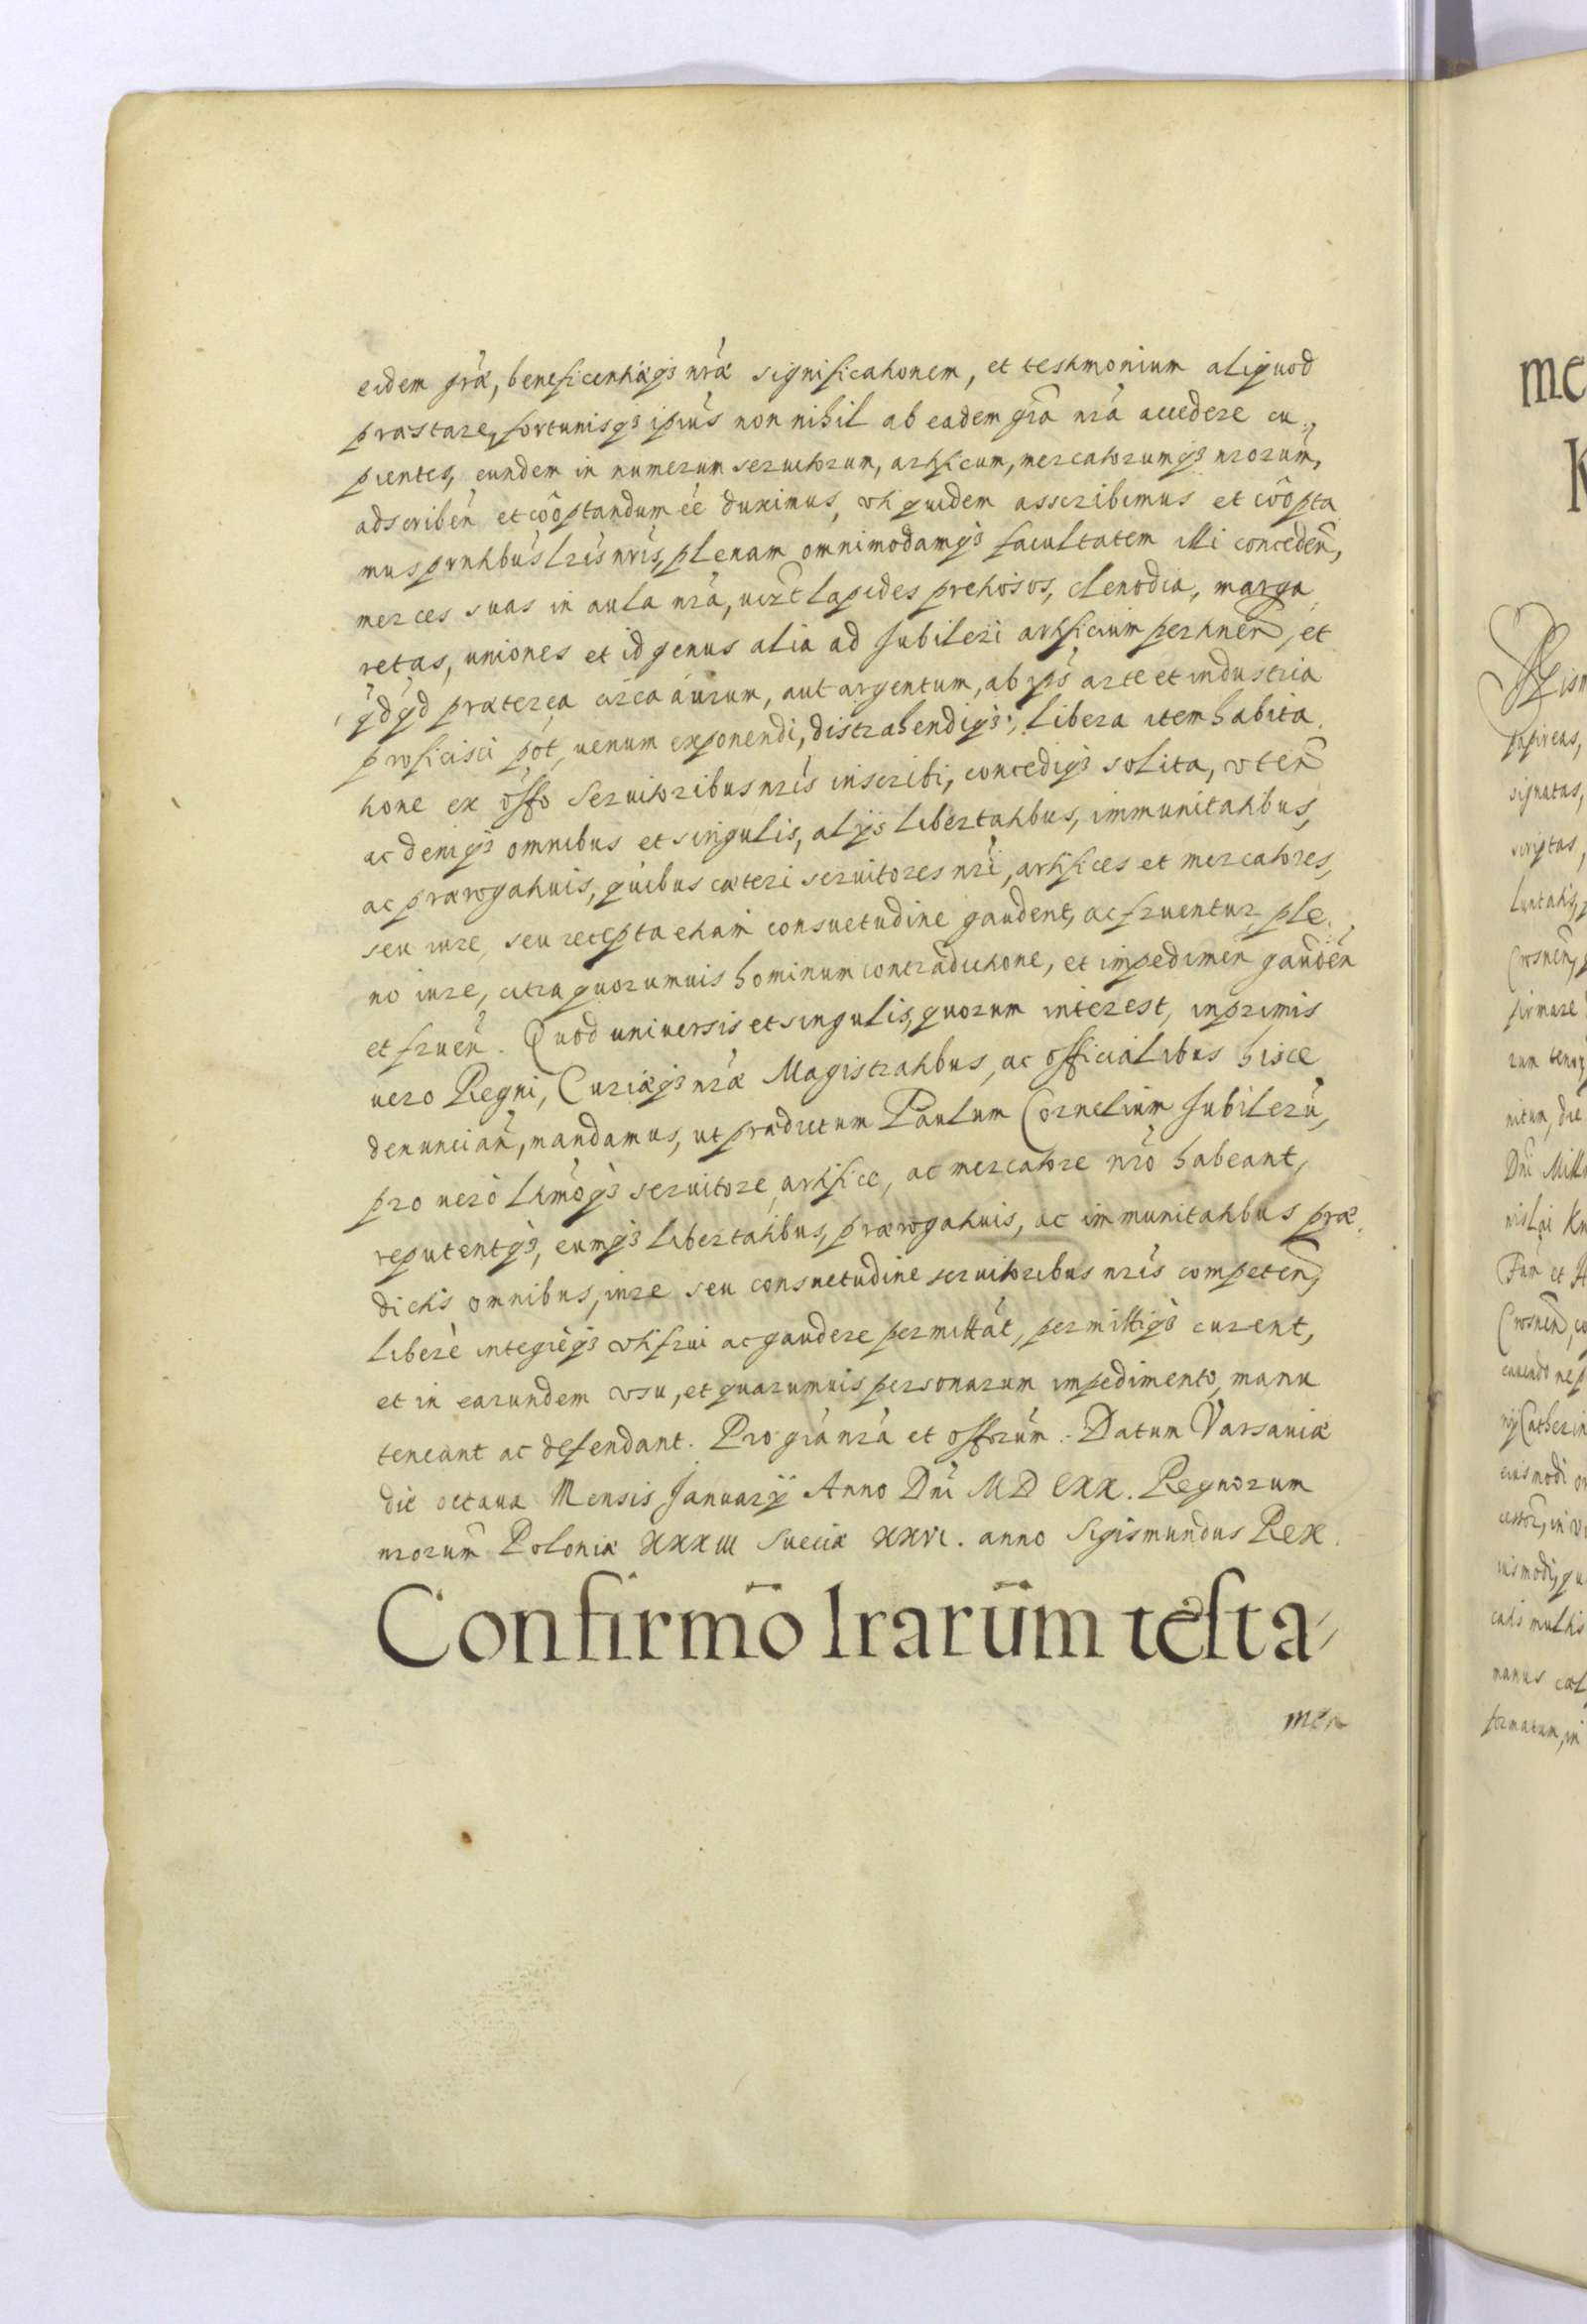 eidem grã, beneficentiæq3 nrã significationem, et testimonium aliquod
præstare, fortunisq3 ipius non nihil ab eadem grã nrã accedere cu„
pientes, eundem in numerum seruitorum, artificum, mercatorumq3 nrorum,
adscribeñ et cõoptandum ee duximus, vti quidem asscribimus et cõopta
mus prntibus lris nris, plenam omnimodamq3 facultatem illi concedeñ,
merces suas in aula nrã, uizt lapides pretiosos, clenodia, marga„
retas, uniones et id genus alia ad Jubileri artificium pertineñ, et
qdqd præterea circa aurum, aut argentum, ab ips arte et industria
proficisci pot, uenum exponendi, distrahendiq3, libera item habita„
tione ex offo Seruitoribus nris inscribi, concediq3 solita, vteñ
ac deniq3 omnibus et singulis, alijs libertatibus, immunitatibus,
ac prærogatiuis, quibus cæteri seruitores nri, artifices et mercatores,
seu iure, seu recepta etiam consuetudine gaudent, ac fruentur ple„
no iure, citra quorumuis hominum contradictione, et impedimeñ gaudeñ
et frueñ. Quod uniuersis et singulis, quorum interest, inprimis
uero Regni, Curiæq3 nræ Magistratibus, ac officialibus hisce
denunciañ, mandamus, ut prædictum Paulum Cornelium Jubilerũ,
pro uero ltimoq3 seruitore, artifice, ac mercatore nro habeant,
reputentq3, eumq3 libertatibus, prærogatiuis, ac immunitatibus præ„
dictis omnibus, iure seu consuetudine seruitoribus nris competeñ,
liberè integrèq3 vti frui ac gaudere permittãt, permittiq3 curent,
et in earundem vsu, et quarumuis personarum impedimento, manu
teneant ac defendant. Pro grã nrã et offorum. Datum Varsauiæ
die octaua Mensis Januarij Anno Dni MDCXX. Regnorum
nrorum Poloniæ XXXIII Sueciæ XXVI. anno Sigismundus Rex.
Confirmõ lrarum testa„
men